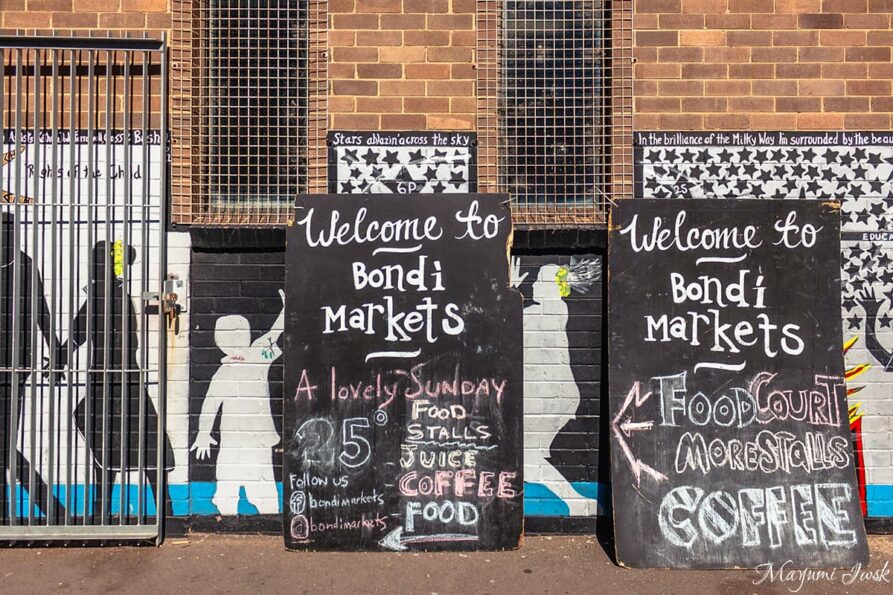 Rights of the Child
Stars ablazin' across the sky
GP
In the brilliance of the Milky Way I'm surrounded by the beau
25
EDUCA
Welcome to
Bondi
Markets
A lovely SUNDAY
25°
FOOD
STALLS
JUICE
COFFEE
FOOD
Follow us
bondimarkets
bondimarkets
Welcome to
Bondi
Markets
FOOD COURT
MORE STALLS
COFFEE
Mayumi Iwsk